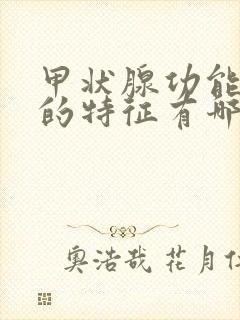 甲状腺功能
的特征有哪
奥浩哉 花月仁